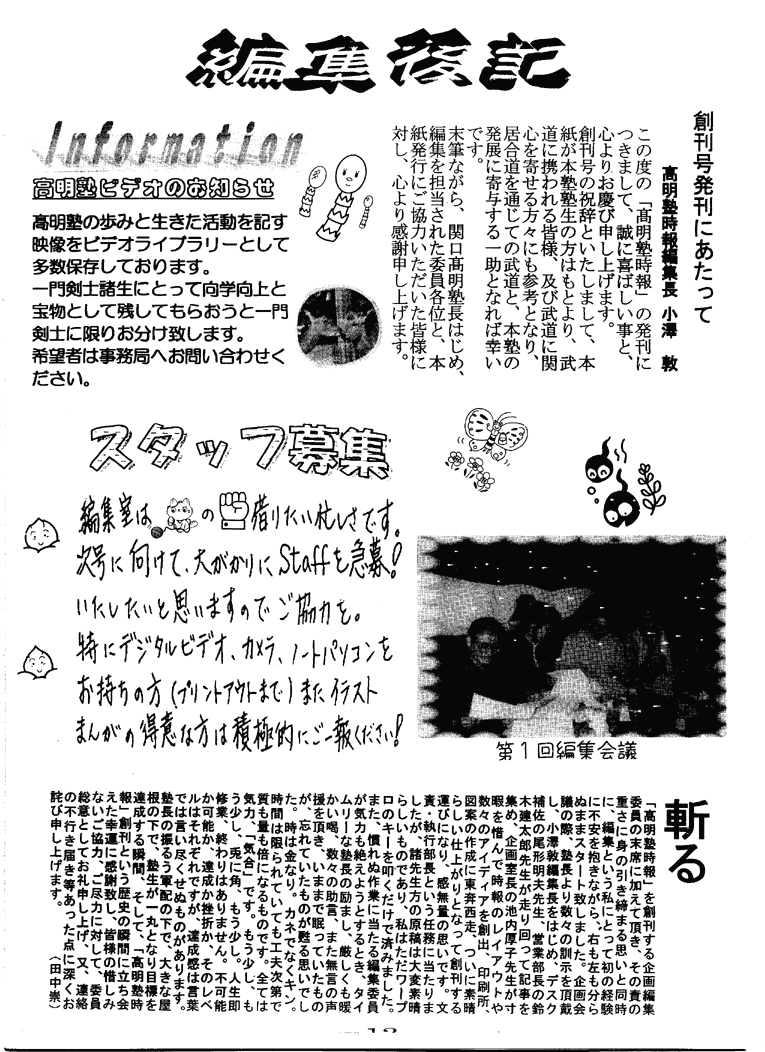 編集後記
創刊号発刊にあたって
高明塾時報編集長　小澤　敦
この度の「高明塾時報」の発刊に
つきまして、誠に喜ばしい事と、
心よりお慶び申し上げます。
創刊号の祝辞といたしまして、本
紙が本塾塾生の方はもとより、武
道に携われる皆様、及び武道に関
心を寄せる方々にも参考となり、
居合道を通じての武道と、本塾の
発展に寄与する一助となれば幸い
です。
末筆ながら、関口髙明塾長はじめ、
編集を担当された委員各位と、本
紙発行にご協力いただいた皆様に
対し、心より感謝申し上げます。
Information
高明塾ビデオのお知らせ
高明塾の歩みと生きた活動を記す
映像をビデオライブラリーとして
多数保存しております。
一門剣士諸生にとって向学向上と
宝物として残してもらおうと一門
剣士に限りお分け致します。
希望者は事務局へお問い合わせく
ださい。
スタッフ募集
編集室は の 借りたい忙しさです。
次号に向けて、大がかりにStaffを急募!
いたしたいと思いますのでご協力を。
特にデジタルビデオ、カメラ、ノートパソコンを
お持ちの方(プリントアウトまで)またイラスト
まんがの得意な方は積極的にご一報ください!
第1回編集会議
斬る
「高明塾時報」を創刊する企画編集
委員の末席に加えて頂き、その責の
重さに身の引き締まる思いと同時
に、編集という私にとって初の経験
に不安を抱きながら、右も左も分ら
ぬままスタート致しました。企画会
議の際、塾長より数々の訓示を頂戴
し、小澤敦編集長をはじめ、デスク
補佐の尾形明夫先生、営業部長の鈴
木建太郎先生が走り回って記事を
集め、企画室長の池内厚子先生が寸
暇を惜んで時報のレイアウトや
数々のアイディアを創出、印刷所、
図案の作成に東奔西走、ついに素晴
らしい仕上がりとなって創刊する
運びになり、感無量の思いです。文
責・執行部長という任務に当たりま
したが、諸先生方の原稿は大変素晴
らしいものであり、私はただワープ
ロのキーを叩くだけで済みました。
また、慣れぬ作業に当たる編集委員
が気力も絶えようとするとき、タイ
ムリーな塾長の励まし、厳しくも暖
かい喝、数々の助言、また無言の声
援を頂き、いままで眠っていたもの
が、忘れていたものが甦る思いでし
た。時は金なり。カネでなくキン。
時間は限られていても工夫次第で
質も量も倍になるものです。全ては
気力、「気合」です。もう少し、も
う少し、兎に角、もう少し。人生即
修業、終わりはありません。不可能
か可能か、達成か挫折か、そのレベ
ルはそれぞれですが、達成感は言葉
では言い尽くせぬものがあります。
塾長の振るう軍配の下で、大きな屋
根の下で、塾生が一丸となり目標を
達成する瞬間、そして、「高明塾時
報」創刊という歴史の瞬間に立ち会
えた幸運に感謝致し、皆様の惜しみ
ないご協力、ご尽力に対して、委員
総意としてお礼申し上げ、又、連絡
の不行き届き等あった点に深くお
詫び申し上げます。
（田中崇）